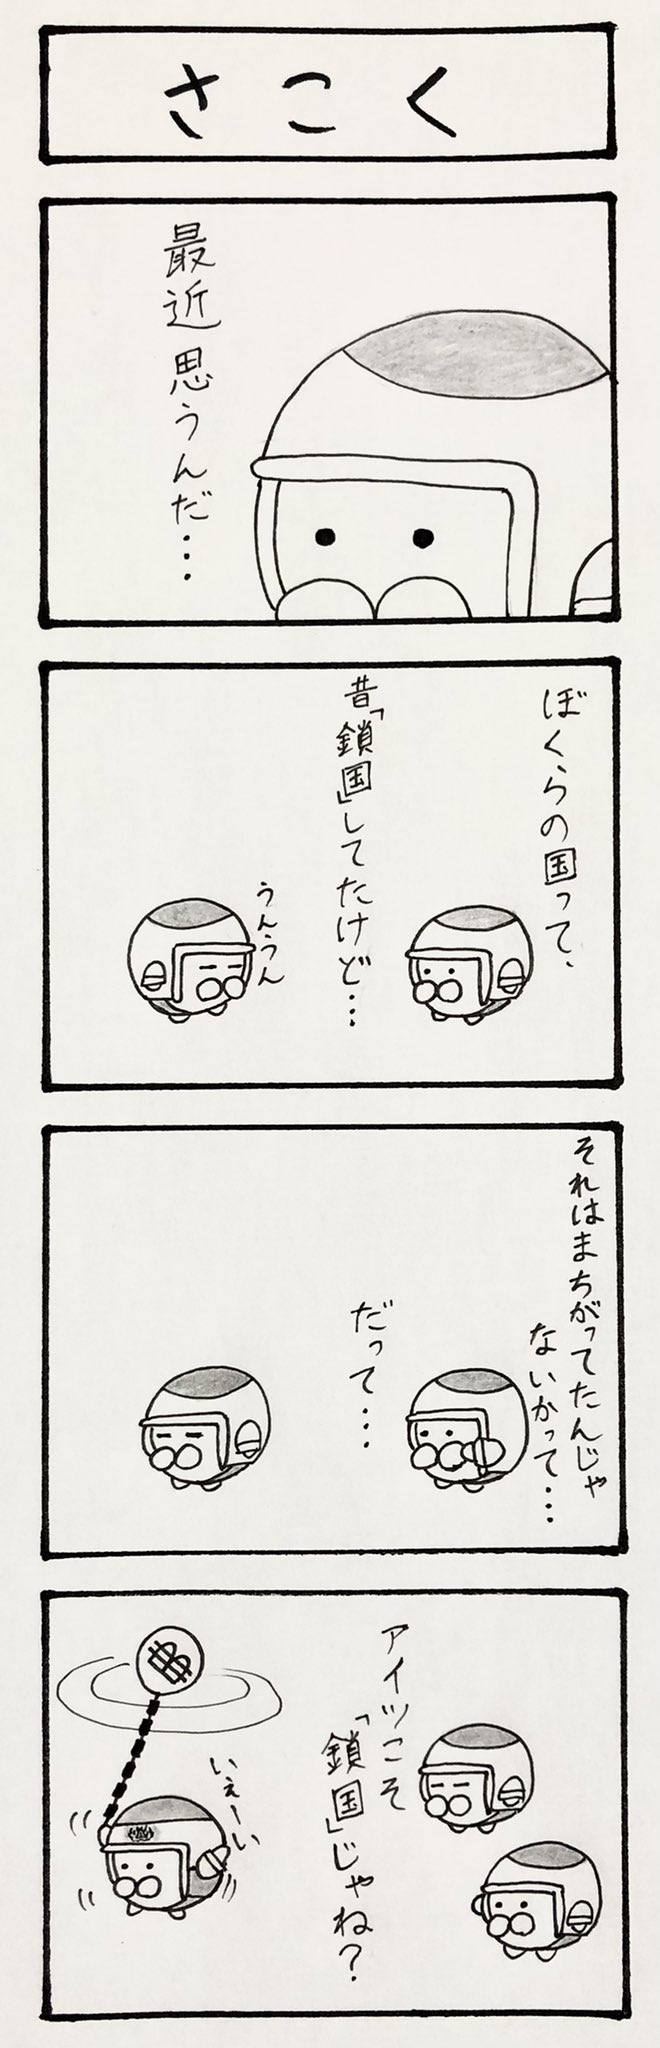 さこく
最近思うんだ…
ぼくらの国って、
昔「鎖国」してたけど…
うんうん
それはまちがってたんじゃ
ないかって…
だって…
アイツこそ
「鎖国」じゃね?
いぇーい
₿